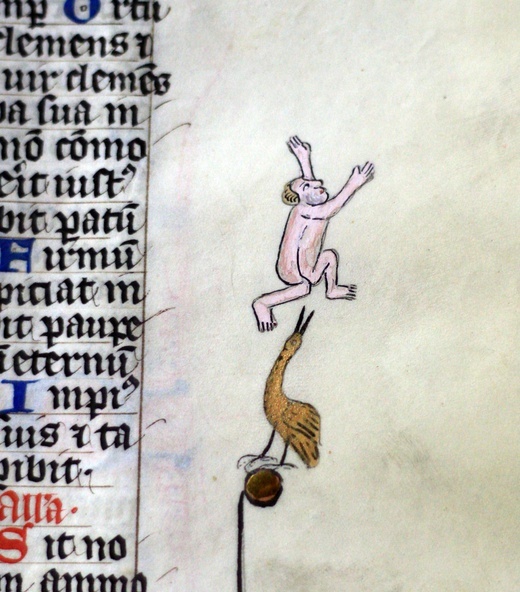 mp Ortū
clemens ⁊
uir clemēs
sua in
cōmo
iustꝰ
bit patū
Firmū
piciat in
it paupe
eternū
Impiꝰ
uis ⁊ ta
pibit.
Alla.
Sit no